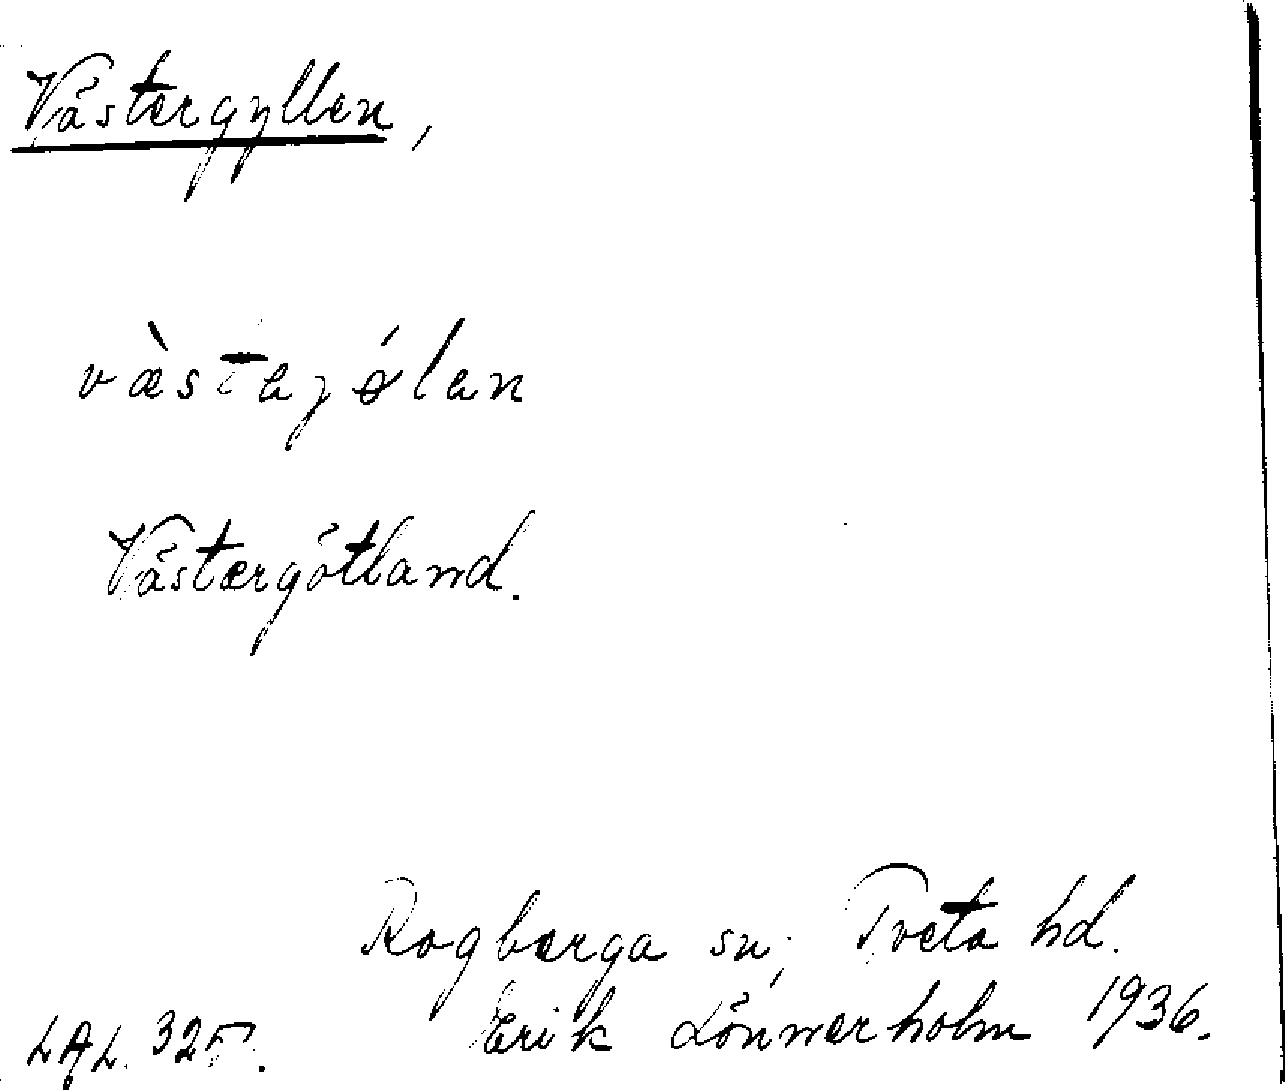 Västergyllen,
væ̀stejǿlen
Västergötland.
Rogberga sn; Tveta hd.
LAL. 325. Erik Lönnerholm 1936.